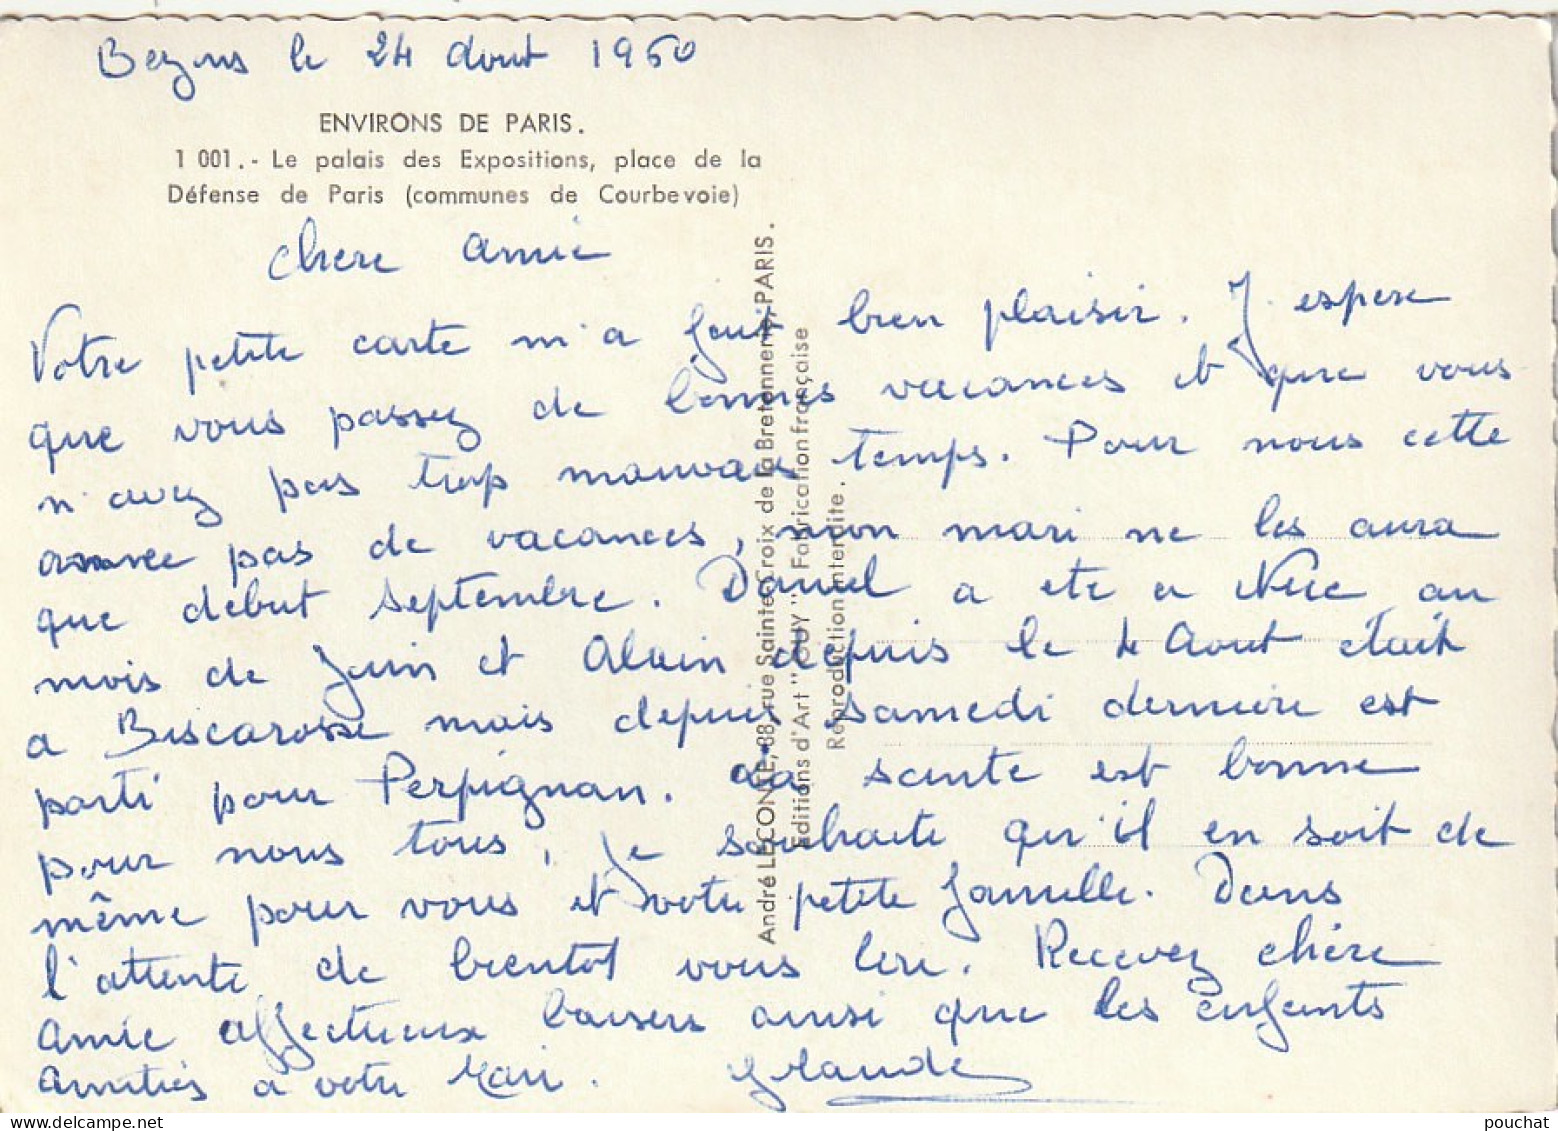 Bezons le 24 Aout 1960
ENVIRONS DE PARIS.
1 001.- Le palais des Expositions, place de la
Défense de Paris (communes de Courbevoie)
chere amie
Votre petite carte m'a fait bien plaisir. J'espere
que vous passez de bonnes vacances et que vous
n'avez pas trop mauvais temps. Pour nous cette
annee pas de vacances, mon mari ne les aura
que debut septembre. Daniel a ete a Nice au
mois de Juin et Alain depuis le 4 Aout était
a Biscarosse mais depuis samedi derniere est
parti pour Perpignan. La sante est bonne
pour nous tous, je souhaite qu'il en soit de
même pour vous et votre petite famille. Dans
l'attente de bientot vous lire. Recevez chère
amie affectueux baisers ainsi que les enfants
amitiés a votre Mari.
André LECONTE, 38, rue Sainte-Croix de la Bretonnerie, PARIS.
Editions d'Art "GUY" Fabrication française
Reproduction interdite.
pouchat